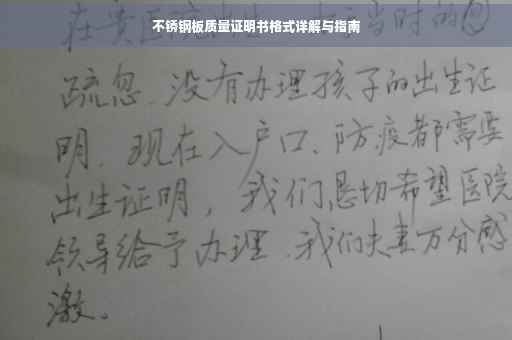 不锈钢板质量证明书格式详解与指南
在贵医院 当时的
疏忽、没有办理孩子的出生证
明、现在入户口、防疫都需要
出生证明，我们恳切希望医院
领导给予办理、我们夫妻万分感
激。